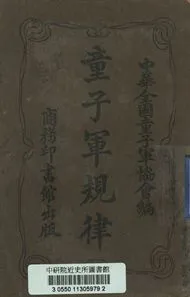 中華全國童子軍協會編
童子軍規律
商務印書館出版
中研院近史所圖書館
3 0550 11305979 2